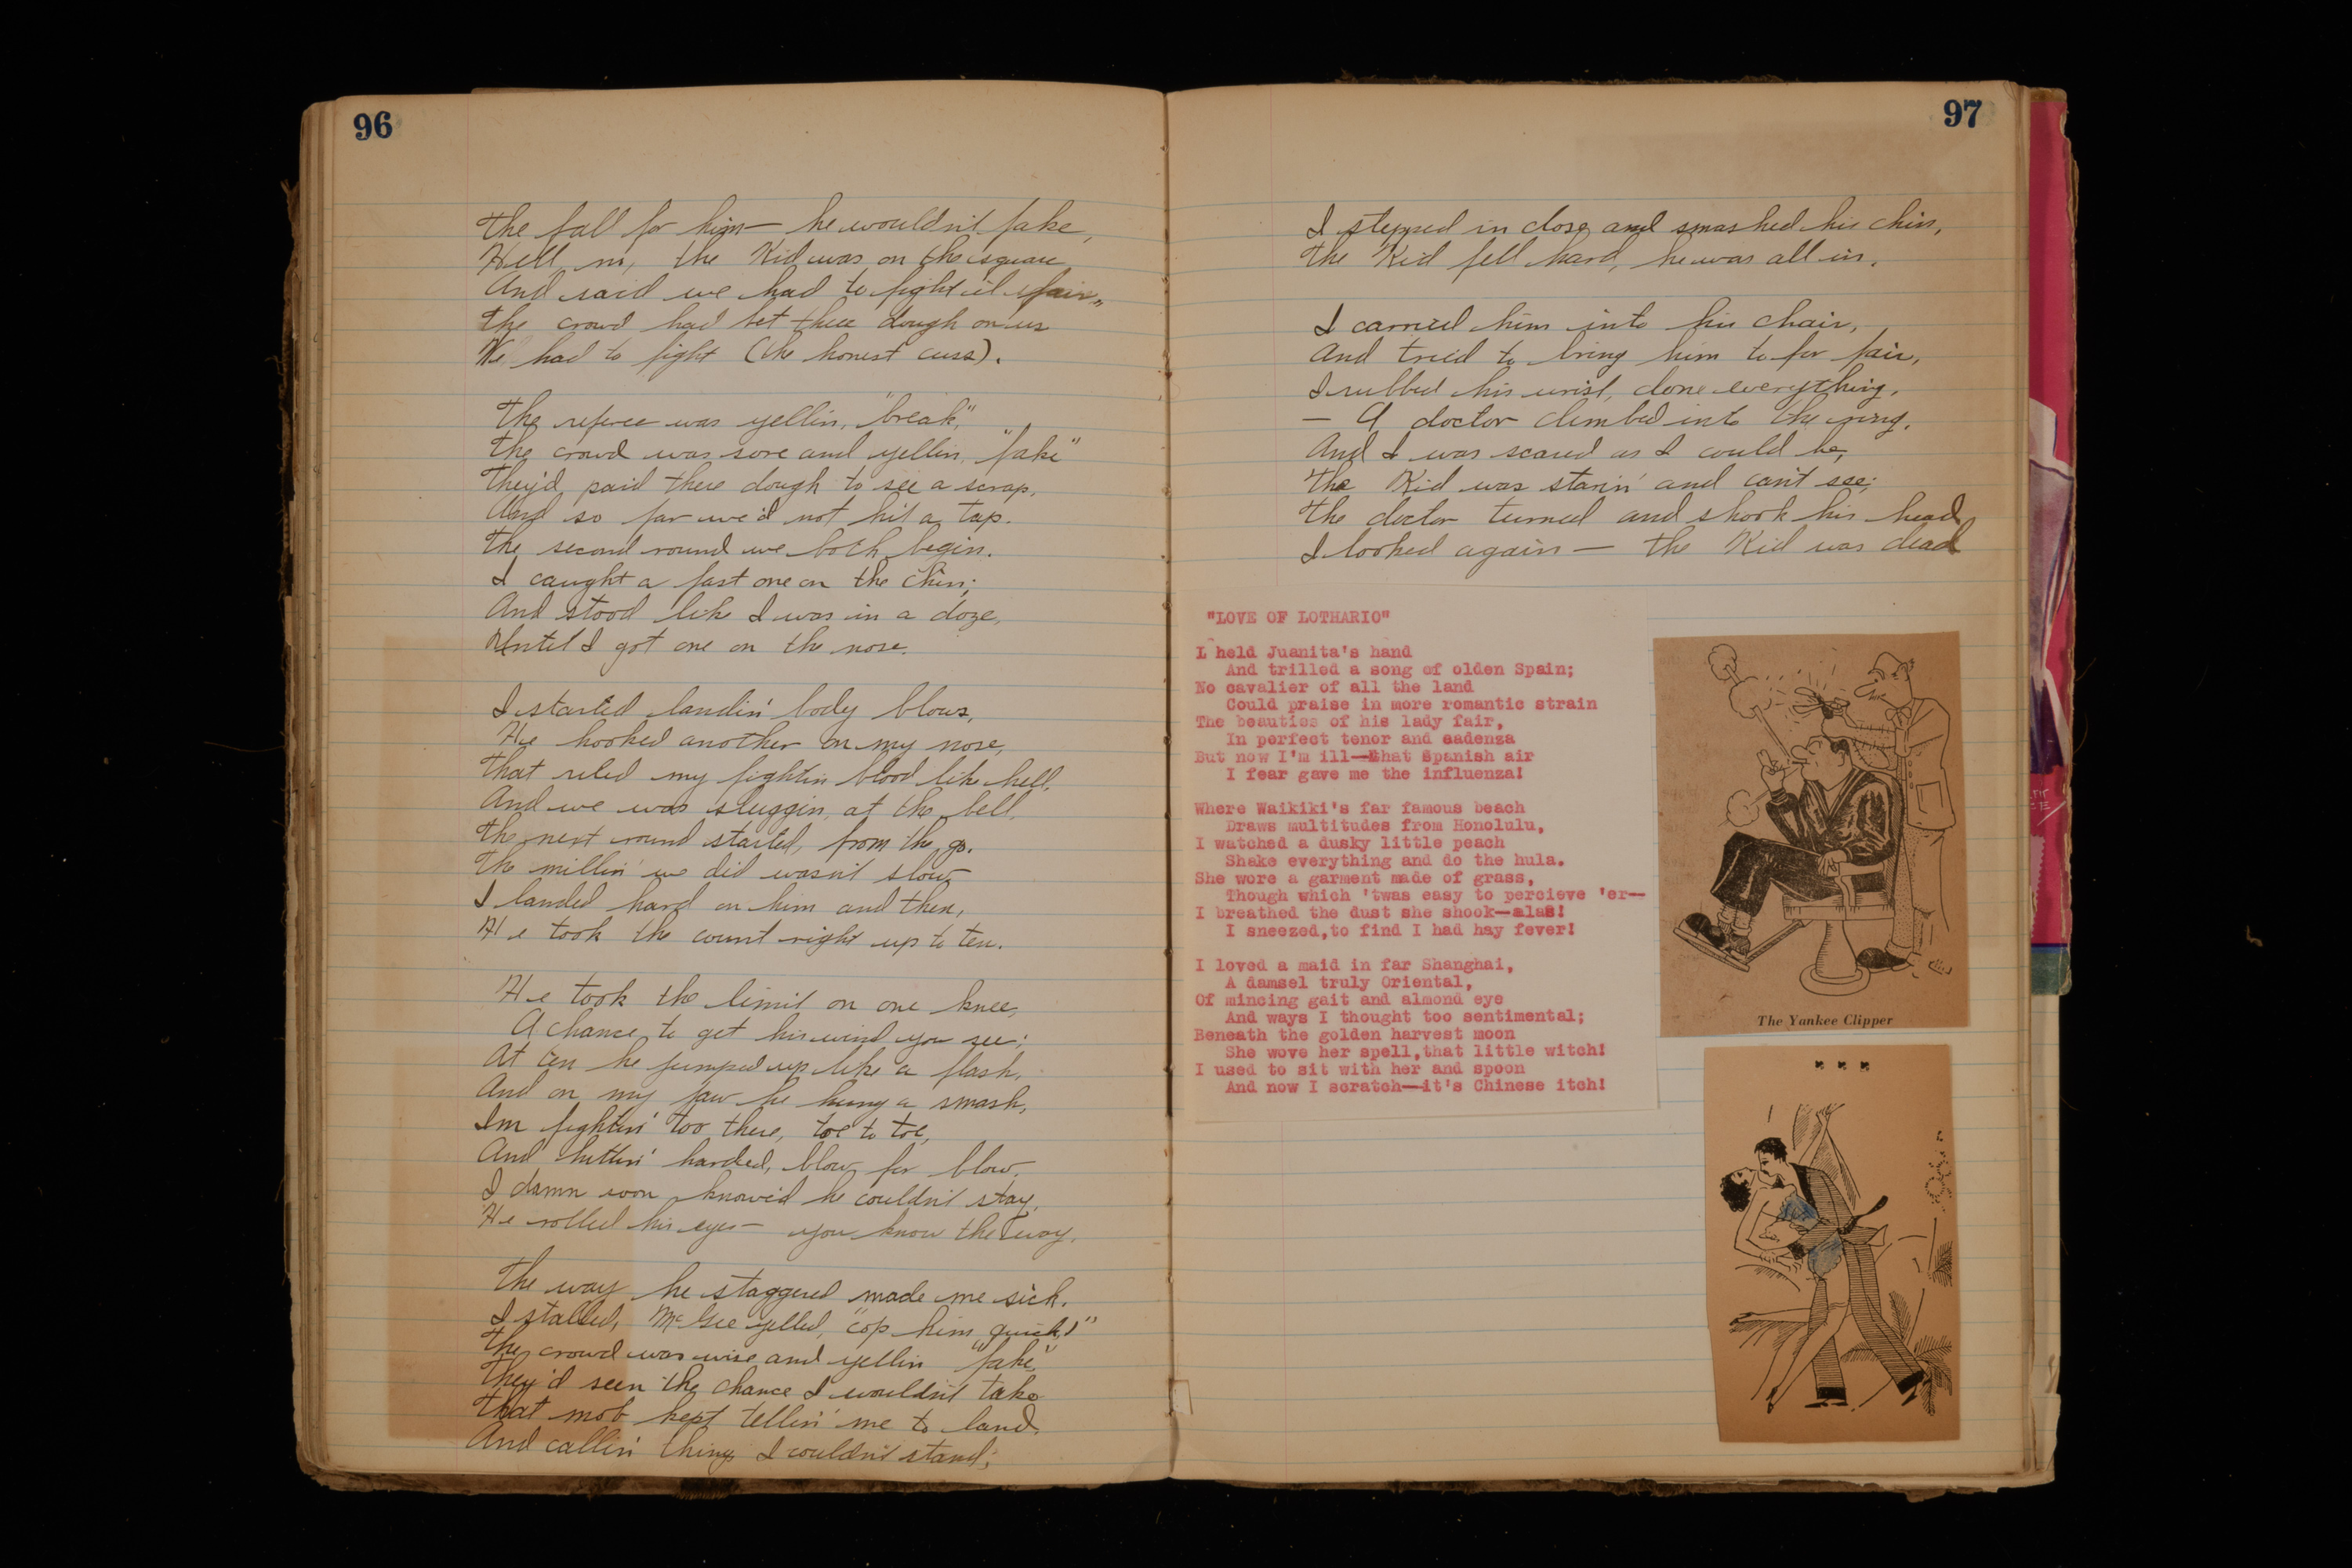 96
The fall for him — he wouldn't fake,
Hell no, the Kid was on the square
And said we had to fight it fair,
The crowd had bet there dough on us
We had to fight (the honest cuss).
The referee was yellin, "break,"
The crowd was sore and yellin, "fake"
They'd paid there dough to see a scrap,
And so far we'd not hit a tap.
The second round we both begin.
I caught a fast one on the chin;
And stood like I was in a doze,
Until I got one on the nose.
I started landin' body blows,
He hooked another on my nose,
That riled my fightin blood like hell,
And we was sluggin, at the bell.
The next round started, from the go.
The millin' we did wasn't slow
I landed hard on him and then,
He took the count right up to ten.
He took the limit on one knee,
A chance to get his wind you see;
At ten he jumped up like a flash,
And on my jaw he hung a smash,
Im fightin' too there, toe to toe,
And hittin' harded, blow for blow,
I damn soon knowed he couldn't stay,
He rolled his eyes — you know the way.
The way he staggered made me sick.
I stalled, McGee yelled, "cop him, quick!"
The crowd was wise and yellin "fake,"
They'd seen the chance I wouldn't take
That mob kept tellin' me to land,
And callin' things I couldn't stand;
97
I stepped in close and smashed his chin,
The Kid fell hard, he was all in.
I carried him into his chair,
And tried to bring him to for fair,
I rubbed his wrist, done everything,
— A doctor climbed into the ring.
And I was scared as I could be,
The Kid was starin' and can't see;
The doctor turned and shook his head
I looked again — the Kid was dead
"LOVE OF LOTHARIO"
I held Juanita's hand
And trilled a song of olden Spain;
No cavalier of all the land
Could praise in more romantic strain
The beauties of his lady fair,
In perfect tenor and cadenza
But now I'm ill—that Spanish air
I fear gave me the influenza!
Where Waikiki's far famous beach
Draws multitudes from Honolulu,
I watched a dusky little peach
Shake everything and do the hula.
She wore a garment made of grass,
Though which 'twas easy to percieve 'er--
I breathed the dust she shook—alas!
I sneezed,to find I had hay fever!
I loved a maid in far Shanghai,
A damsel truly Oriental,
Of mincing gait and almond eye
And ways I thought too sentimental;
Beneath the golden harvest moon
She wove her spell,that little witch!
I used to sit with her and spoon
And now I scratch—it's Chinese itch!
The Yankee Clipper